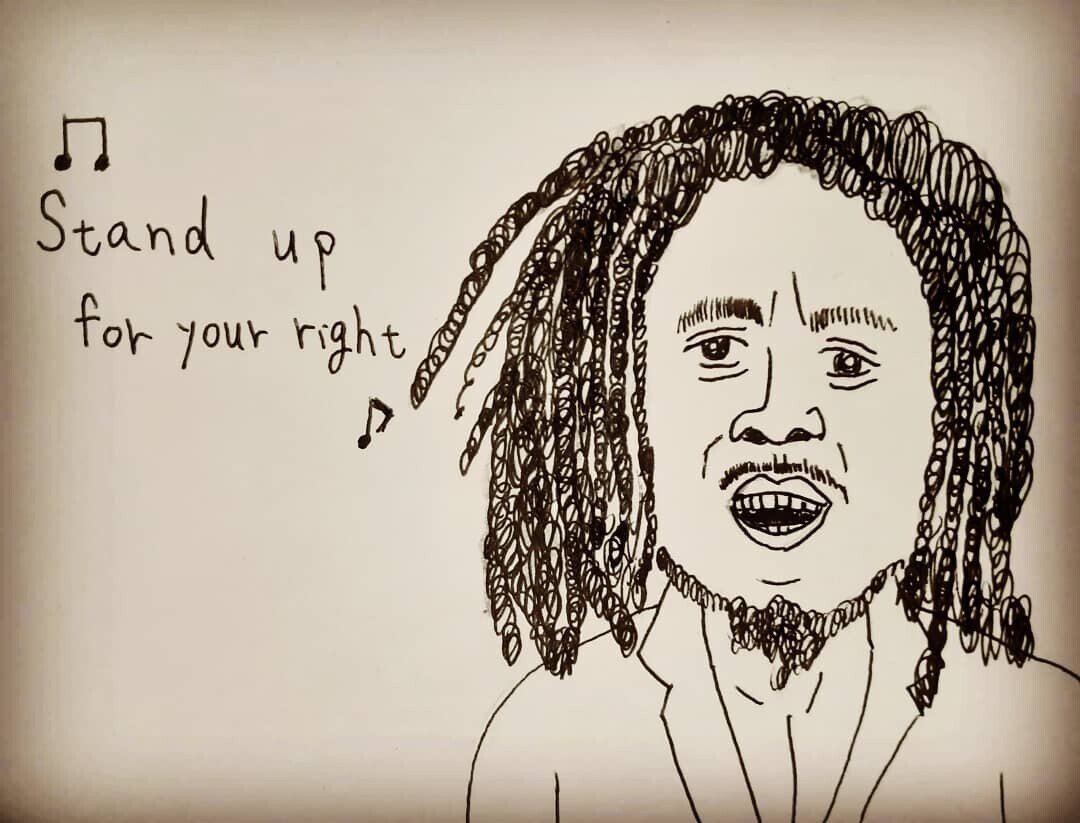 Stand up
for your right